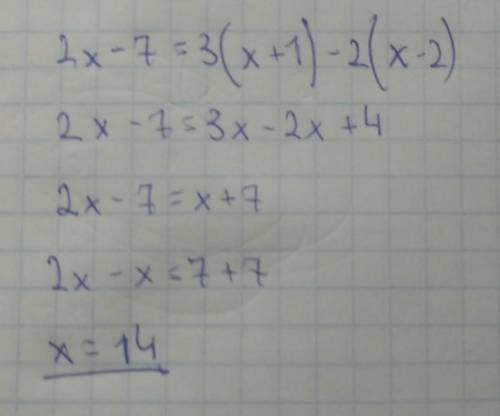 2x - 7 = 3(x + 1) - 2(x - 2)
2x - 7 = 3x - 2x + 4
2x - 7 = x + 7
2x - x = 7 + 7
x = 14